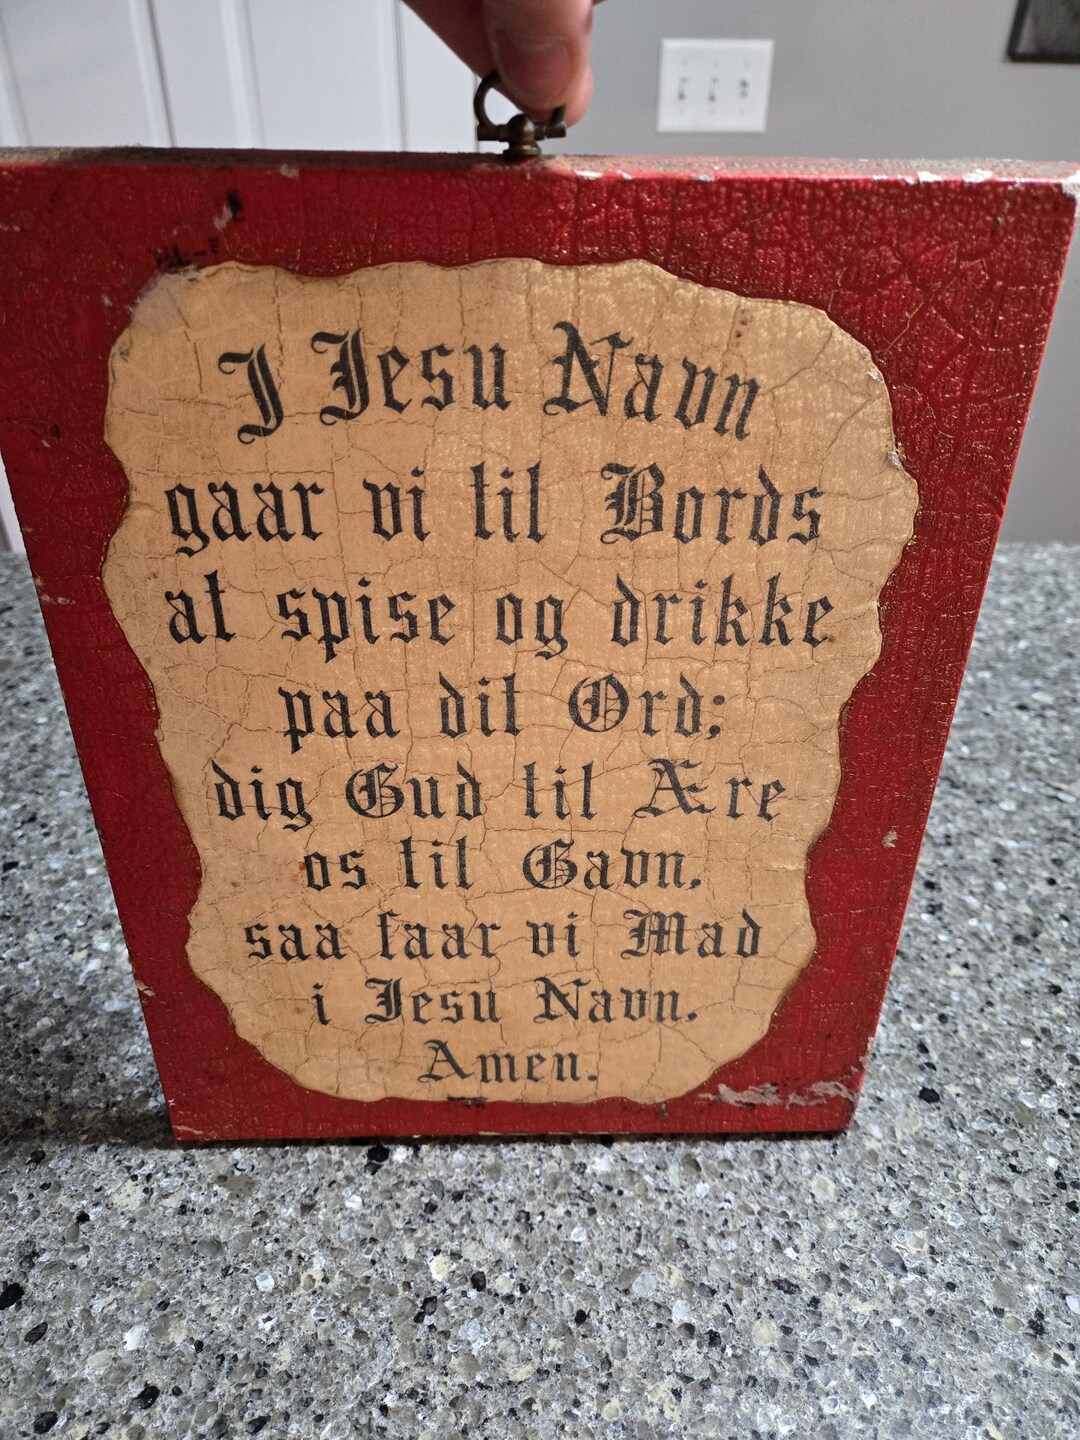 I Jesu Navn
gaar vi til Bords
at spise og drikke
paa dit Ord;
dig Gud til Ære
os til Gavn,
saa faar vi Mad
i Jesu Navn.
Amen.